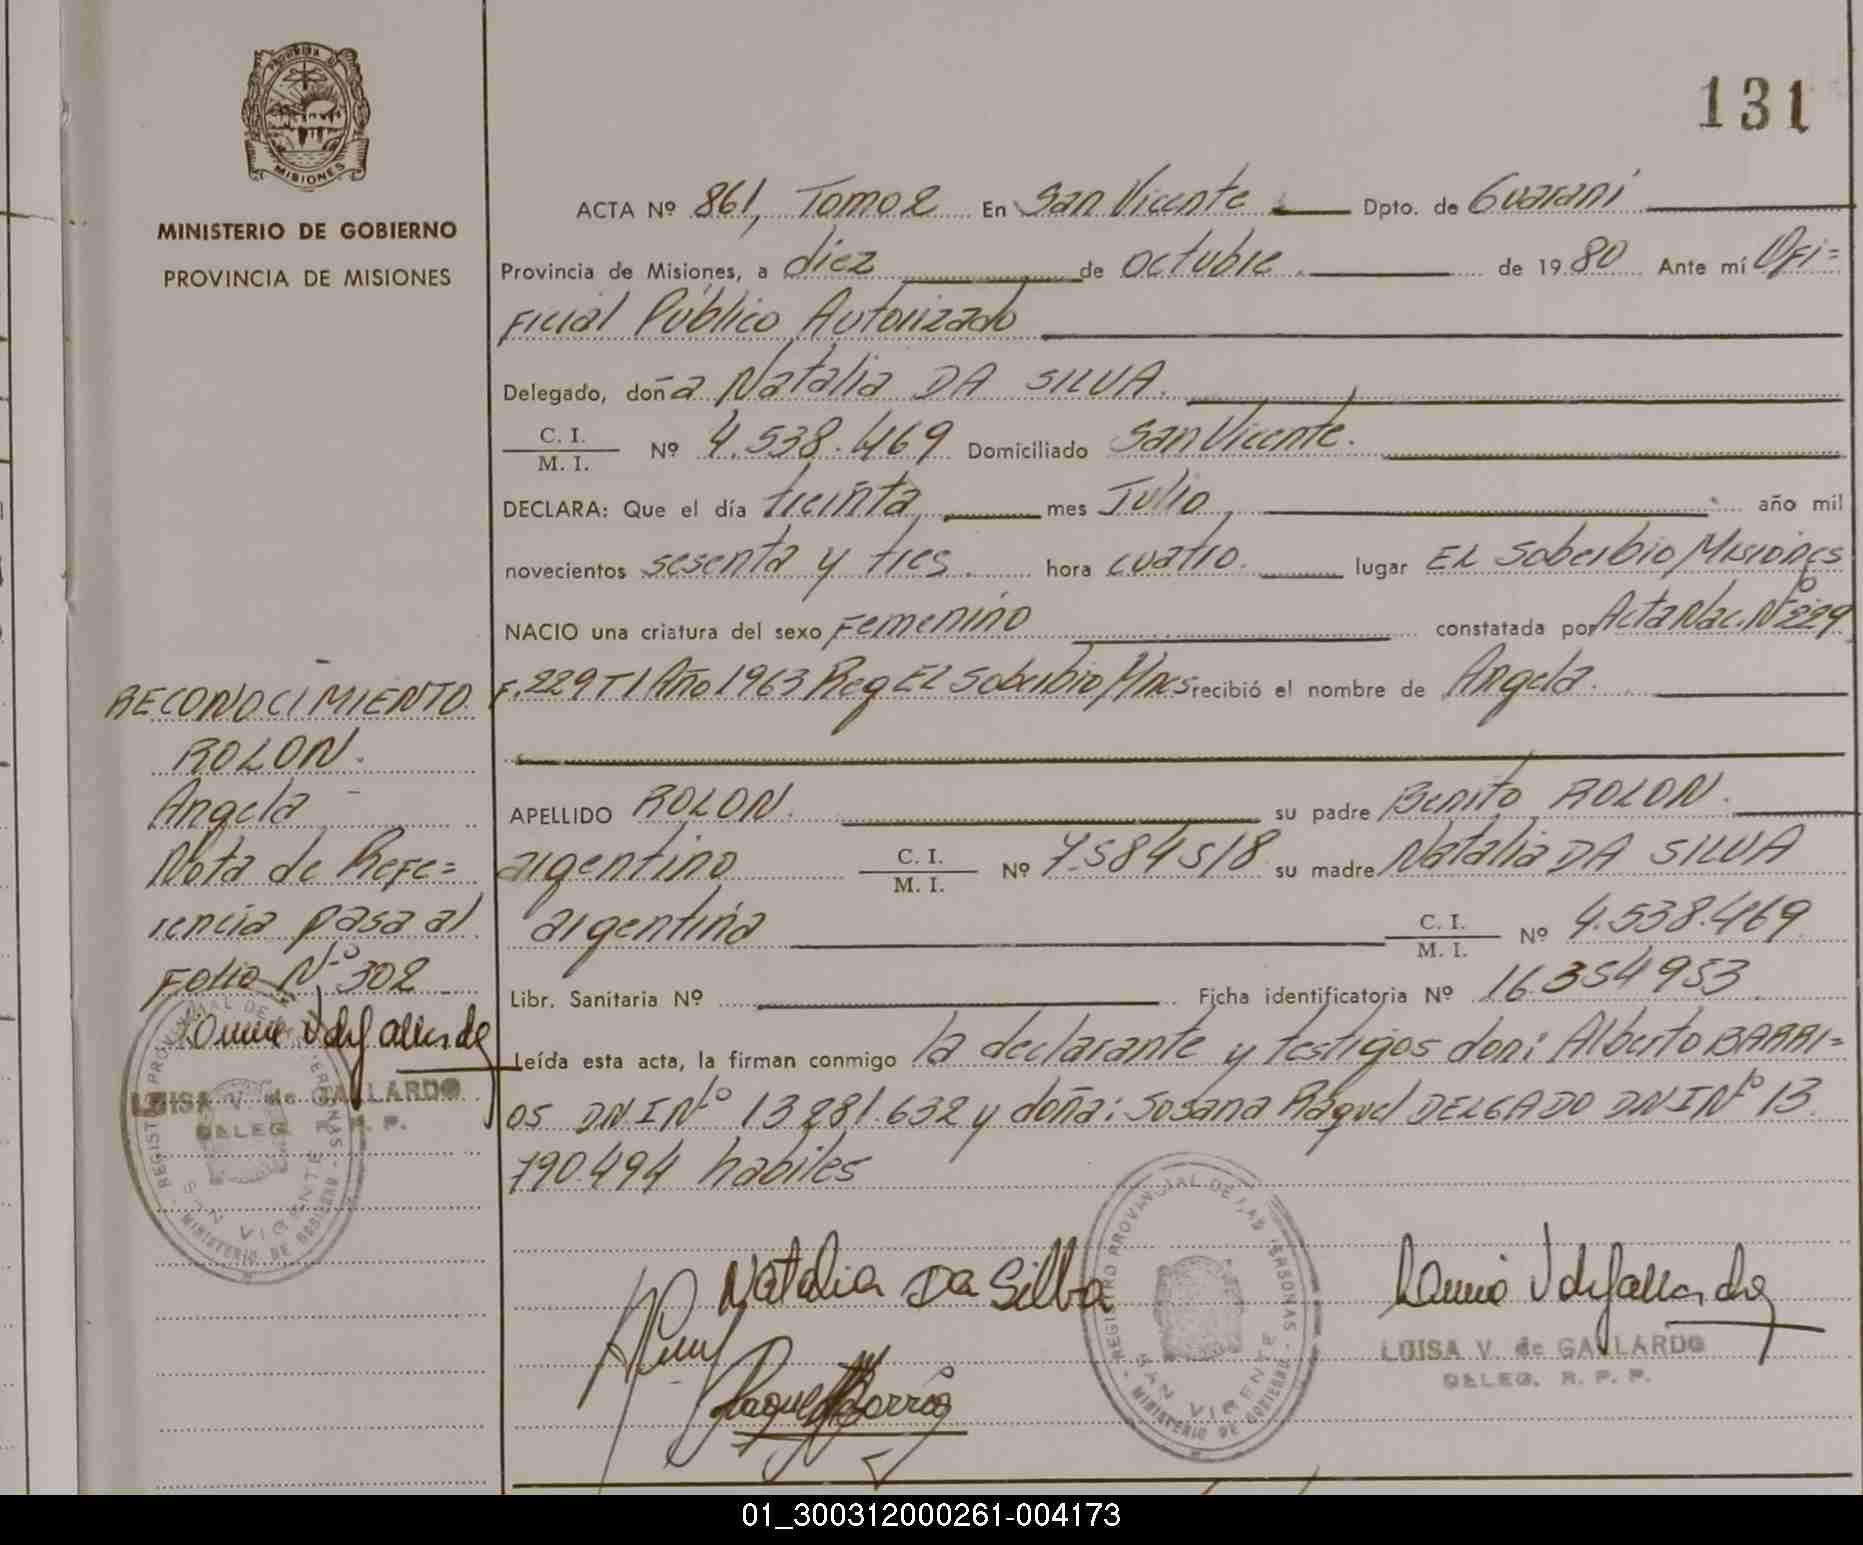 PROVINCIA DE
MISIONES
MINISTERIO DE GOBIERNO
PROVINCIA DE MISIONES
131
ACTA Nº 861, Tomo 2 En San Vicente Dpto. de Guaraní
Provincia de Misiones, a diez de octubre de 1980 Ante mí Ofi=
ficial Público Autorizado
Delegado, doña Natalia DA SILVA.
C. I. / M. I. Nº 4.538.469 Domiciliado San Vicente.
DECLARA: Que el día treinta mes Julio año mil
novecientos sesenta y tres. hora cuatro. lugar EL Soberbio, Misiones
NACIO una criatura del sexo Femenino constatada por Acta Nac. Nº 229
F. 229 T1 Año 1963 Reg EL Soberbio, Mnes recibió el nombre de Angela.
APELLIDO ROLON. su padre Benito ROLON.
argentino C. I. / M. I. Nº 7.584518 su madre Natalia DA SILVA
argentina C. I. / M. I. Nº 4.538.469
Libr. Sanitaria Nº Ficha identificatoria Nº 16.354953
Leída esta acta, la firman conmigo la declarante y testigos don: Alberto BARRI=
OS DNI Nº 13281.632 y doña: Susana Raquel DELGADO DNI Nº 13.
790.494 habiles
RECONOCIMIENTO.
ROLON.
Angela
Nota de Refe=
rencia pasa al
Folio Nº 302
LUISA V. de GALLARDO
DELEG. R. P. P.
REGISTRO PROVINCIAL DE LAS PERSONAS
SAN VICENTE
MINISTERIO DE GOBIERNO
Natalia Da Silba
REGISTRO PROVINCIAL DE LAS PERSONAS
SAN VICENTE
MINISTERIO DE GOBIERNO
LUISA V. de GALLARDO
DELEG. R. P. P.
01_300312000261-004173